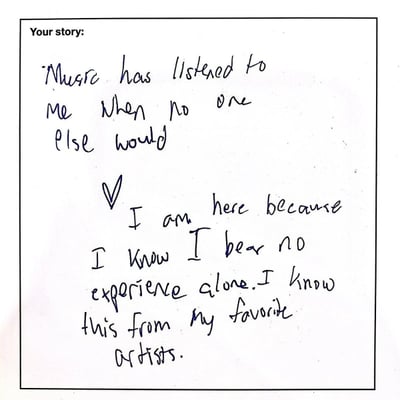 Your story:
Music has listened to
me when no one
else would
I am here because
I know I bear no
experience alone. I know
this from my favorite
artists.